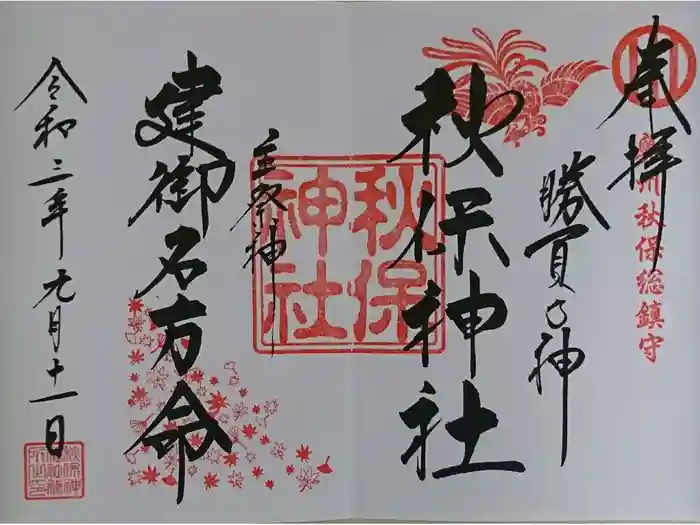 奉拝
奥州秋保総鎮守
勝負の神
秋保神社
秋保神社
主祭神
建御名方命
令和三年九月十一日